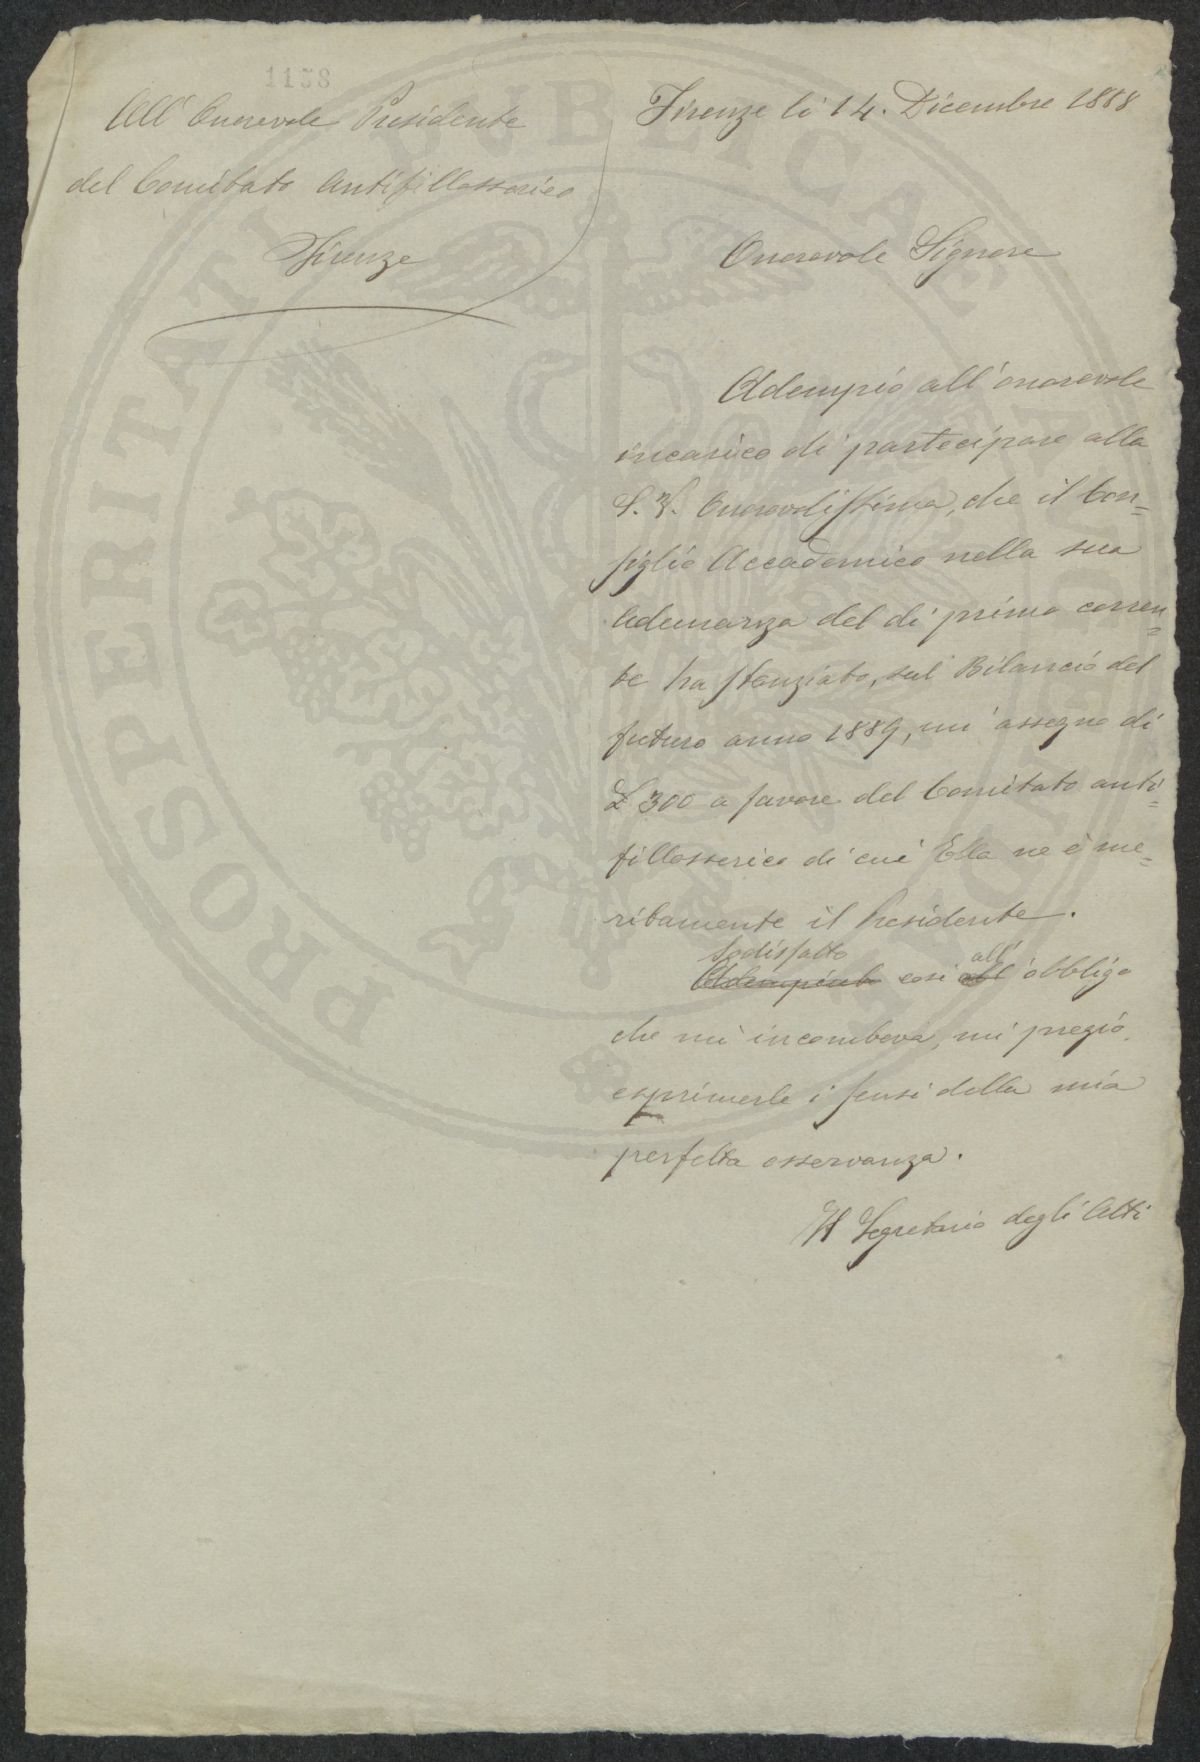 1158
All' Onorevole Presidente
del Comitato Antifillosserico
Firenze
Firenze li 14. Dicembre 1888
Onorevole Signore
Adempio all'onorevole
incarico di partecipare alla
S. V. Onorevolissima, che il Con=
siglio Accademico nella sua
Adunanza del dì primo corren=
te ha stanziato, sul Bilancio del
futuro anno 1889, un' assegno di
£ 300 a favore del Comitato anti=
fillosserico di cui Ella ne è me=
ritamente il Presidente.
Sodisfatto all'
Adempiuto così all' obbligo
che mi incombeva, mi pregio
esprimerle i sensi della mia
perfetta osservanza.
Il Segretario degli Atti
PROSPERITATI PVBLICAE